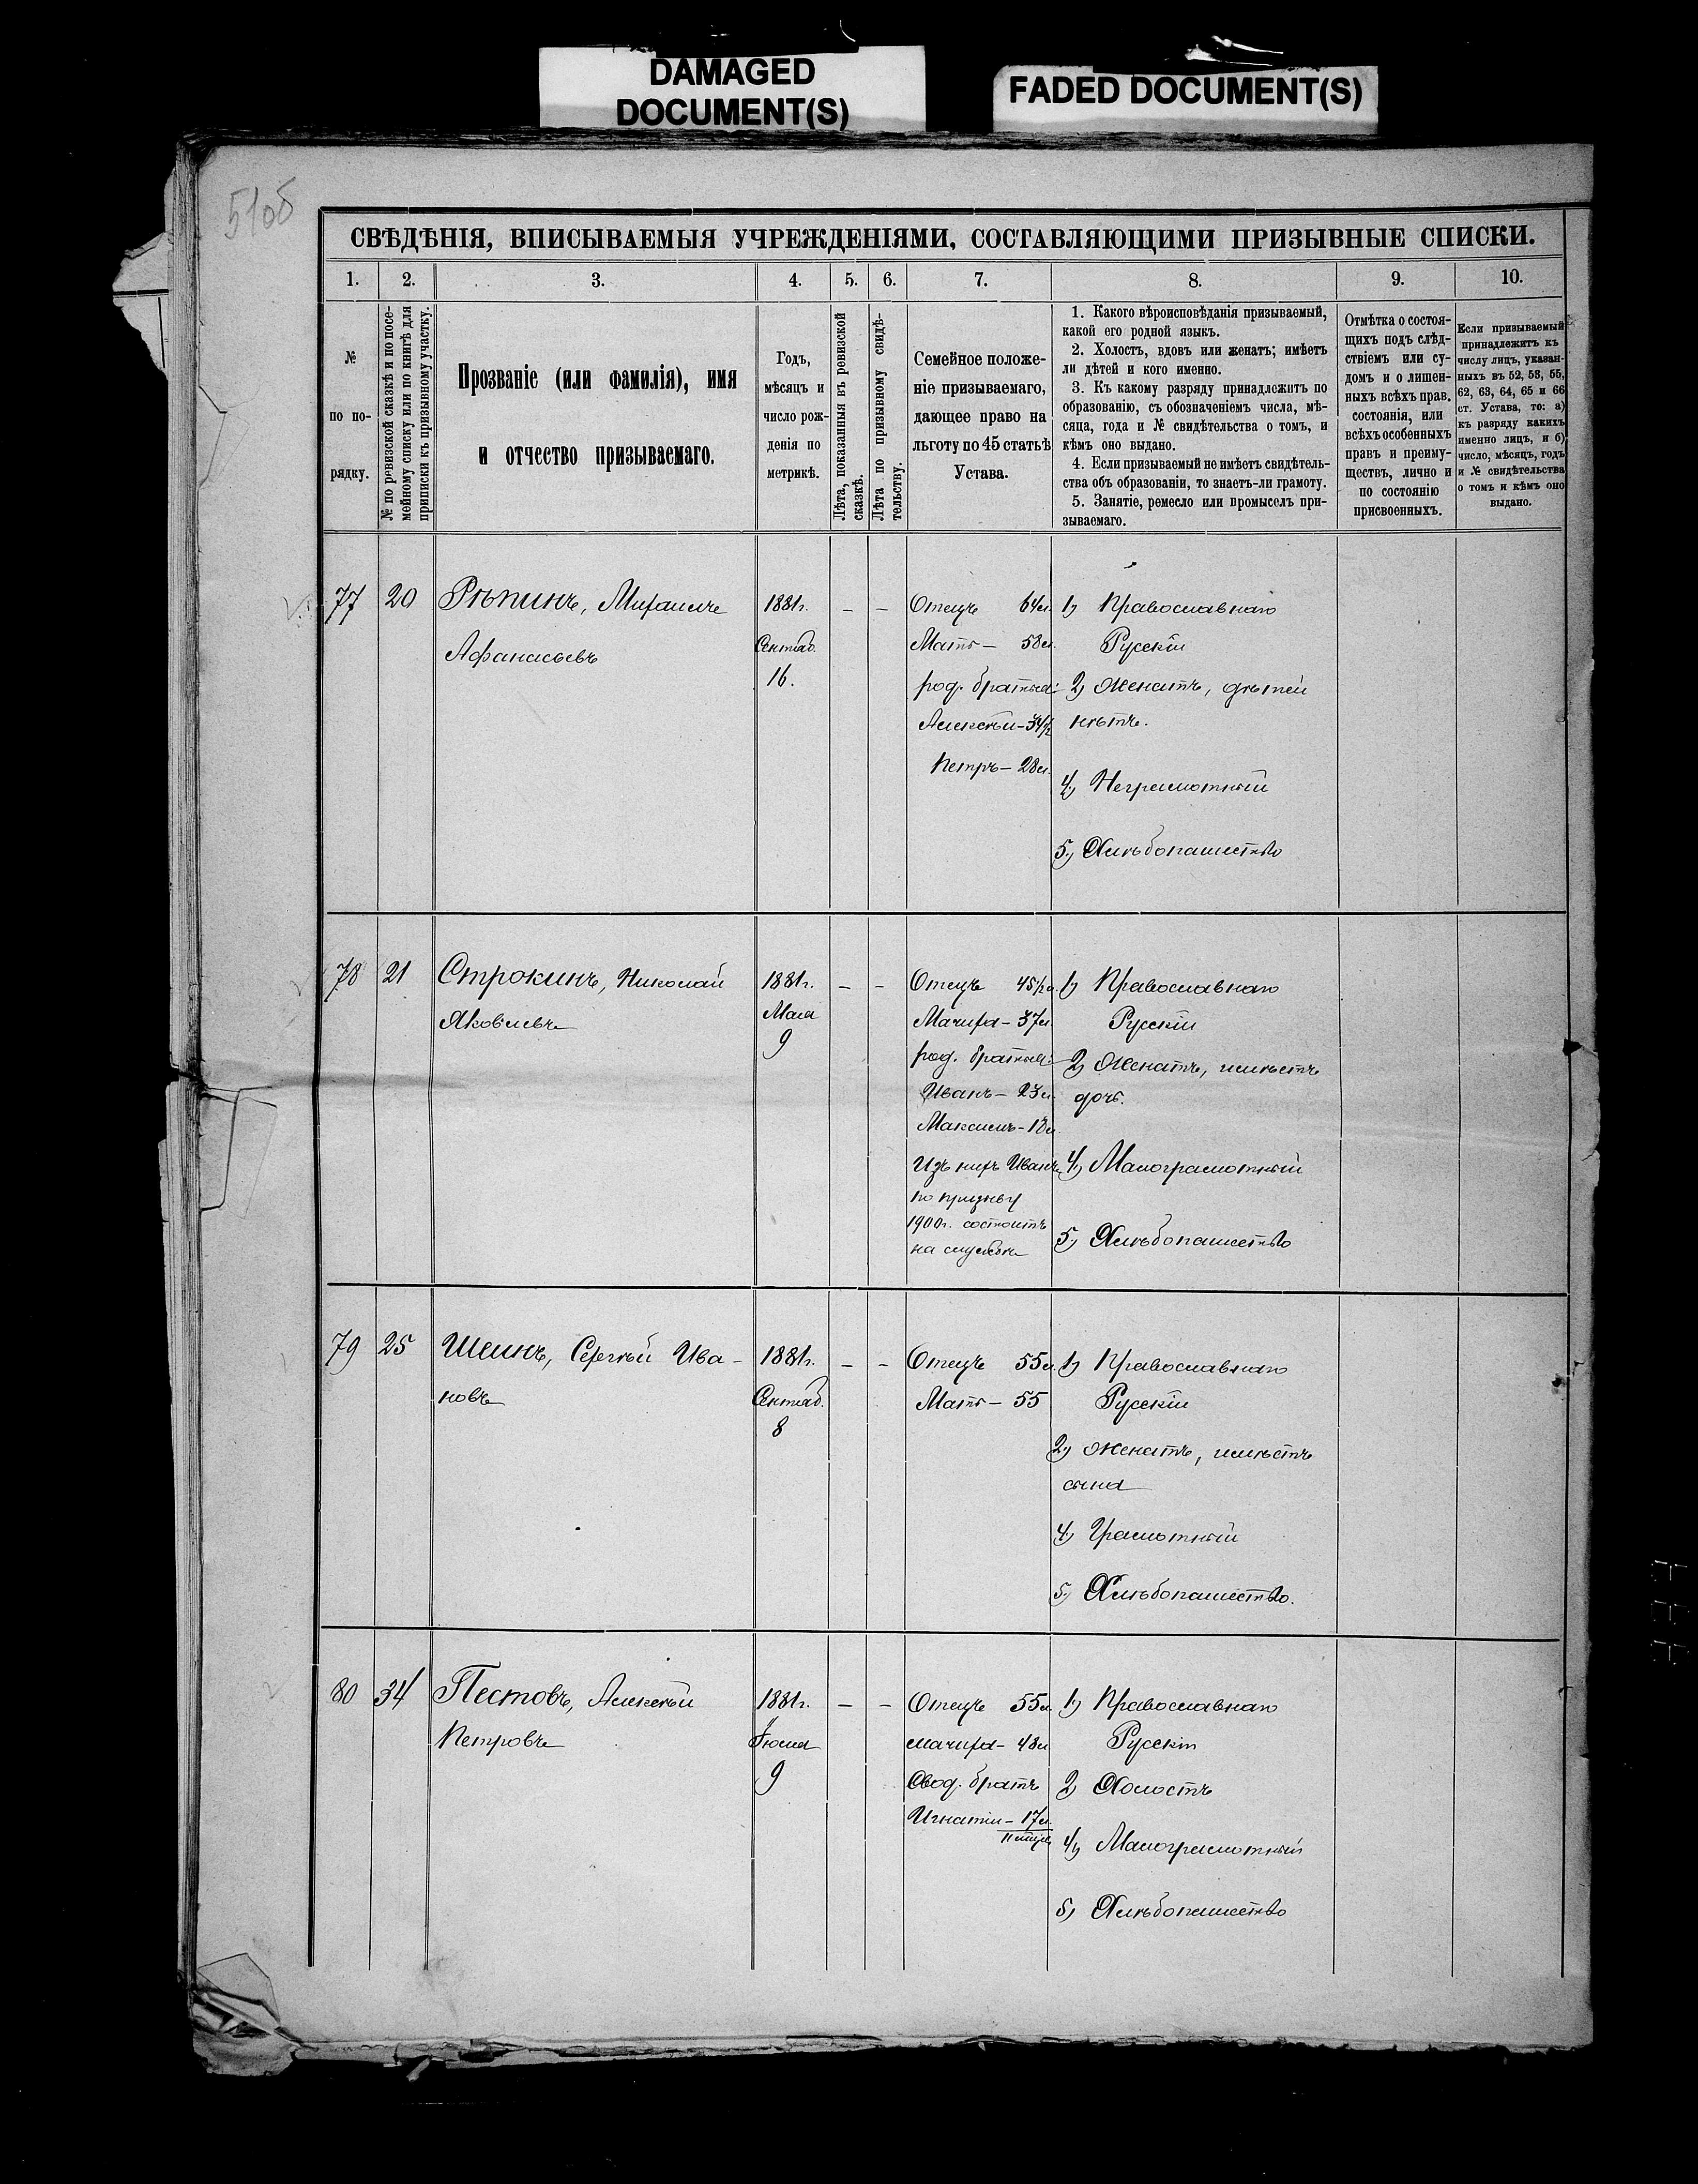 DAMAGED
DOCUMENT(S)
FADED DOCUMENT(S)
51об
СВѢДѢНІЯ, ВПИСЫВАЕМЫЯ УЧРЕЖДЕНІЯМИ, СОСТАВЛЯЮЩИМИ ПРИЗЫВНЫЕ СПИСКИ.
1. 2. 3. 4. 5. 6. 7. 8. 9. 10.
№
по по-
рядку.
№ по ревизской сказкѣ и по посе-
мейному списку или по книгѣ для
приписки къ призывному участку.
Прозваніе (или фамилія), имя
и отчество призываемаго.
Годъ,
мѣсяцъ и
число рож-
денія по
метрикѣ.
Лѣта, показанныя въ ревизской
сказкѣ.
Лѣта по призывному свидѣ-
тельству.
Семейное положе-
ніе призываемаго,
дающее право на
льготу по 45 статьѣ
Устава.
1. Какого вѣроисповѣданія призываемый,
какой его родной языкъ.
2. Холостъ, вдовъ или женатъ; имѣетъ
ли дѣтей и кого именно.
3. Къ какому разряду принадлежитъ по
образованію, съ обозначеніемъ числа, мѣ-
сяца, года и № свидѣтельства о томъ, и
кѣмъ оно выдано.
4. Если призываемый не имѣетъ свидѣтель-
ства объ образованіи, то знаетъ-ли грамоту.
5. Занятіе, ремесло или промыселъ при-
зываемаго.
Отмѣтка о состоя-
щихъ подъ слѣд-
ствіемъ или су-
домъ и о лишен-
ныхъ всѣхъ прав.
состоянія, или
всѣхъ особенныхъ
правъ и преиму-
ществъ, лично и
по состоянію
присвоенныхъ.
Если призываемый
принадлежитъ къ
числу лицъ, указан-
ныхъ въ 52, 53, 55,
62, 63, 64, 65 и 66
ст. Устава, то: а)
къ разряду какихъ
именно лицъ, и б)
число, мѣсяцъ, годъ
и № свидѣтельства
о томъ и кѣмъ оно
выдано.
77 20 Рѣпинъ, Михаилъ
Афанасьевъ
1881г.
Сентяб.
16.
– –
Отецъ 64л.
Мать – 58л.
род. братья:
Алексѣй – 34/2
Петръ – 28л.
1) Православнаго
Русскій
2) Женатъ, дѣтей
нѣтъ.
4) Неграмотный
5) Хлѣбопашество
78 21 Строкинъ, Николай
Яковлевъ
1881г.
Мая
9
– –
Отецъ 45/2
Мачиха – 37л.
род. братья:
Иванъ – 23л.
Максимъ – 18л
Изъ нихъ Иванъ
по призыву
1900г. состоитъ
на службѣ
1) Православнаго
Русскій
2) Женатъ, имѣетъ
дочь.
4) Малограмотный
5) Хлѣбопашество
79 25 Шеинъ, Сергѣй Ива-
новъ
1881г.
Сентяб.
8
– –
Отецъ 55л.
Мать – 55
1) Православнаго
Русскій
2) Женатъ, имѣетъ
сына
4) Грамотный
5) Хлѣбопашество.
80 34 Пестовъ, Алексѣй
Петровъ
1881г.
Іюля
9
– –
Отецъ 55л.
мачиха – 48л
Свод. братъ
Игнатій – 17л.
1) Православнаго
Русскій
2) Холостъ
4) Малограмотный
5) Хлѣбопашество